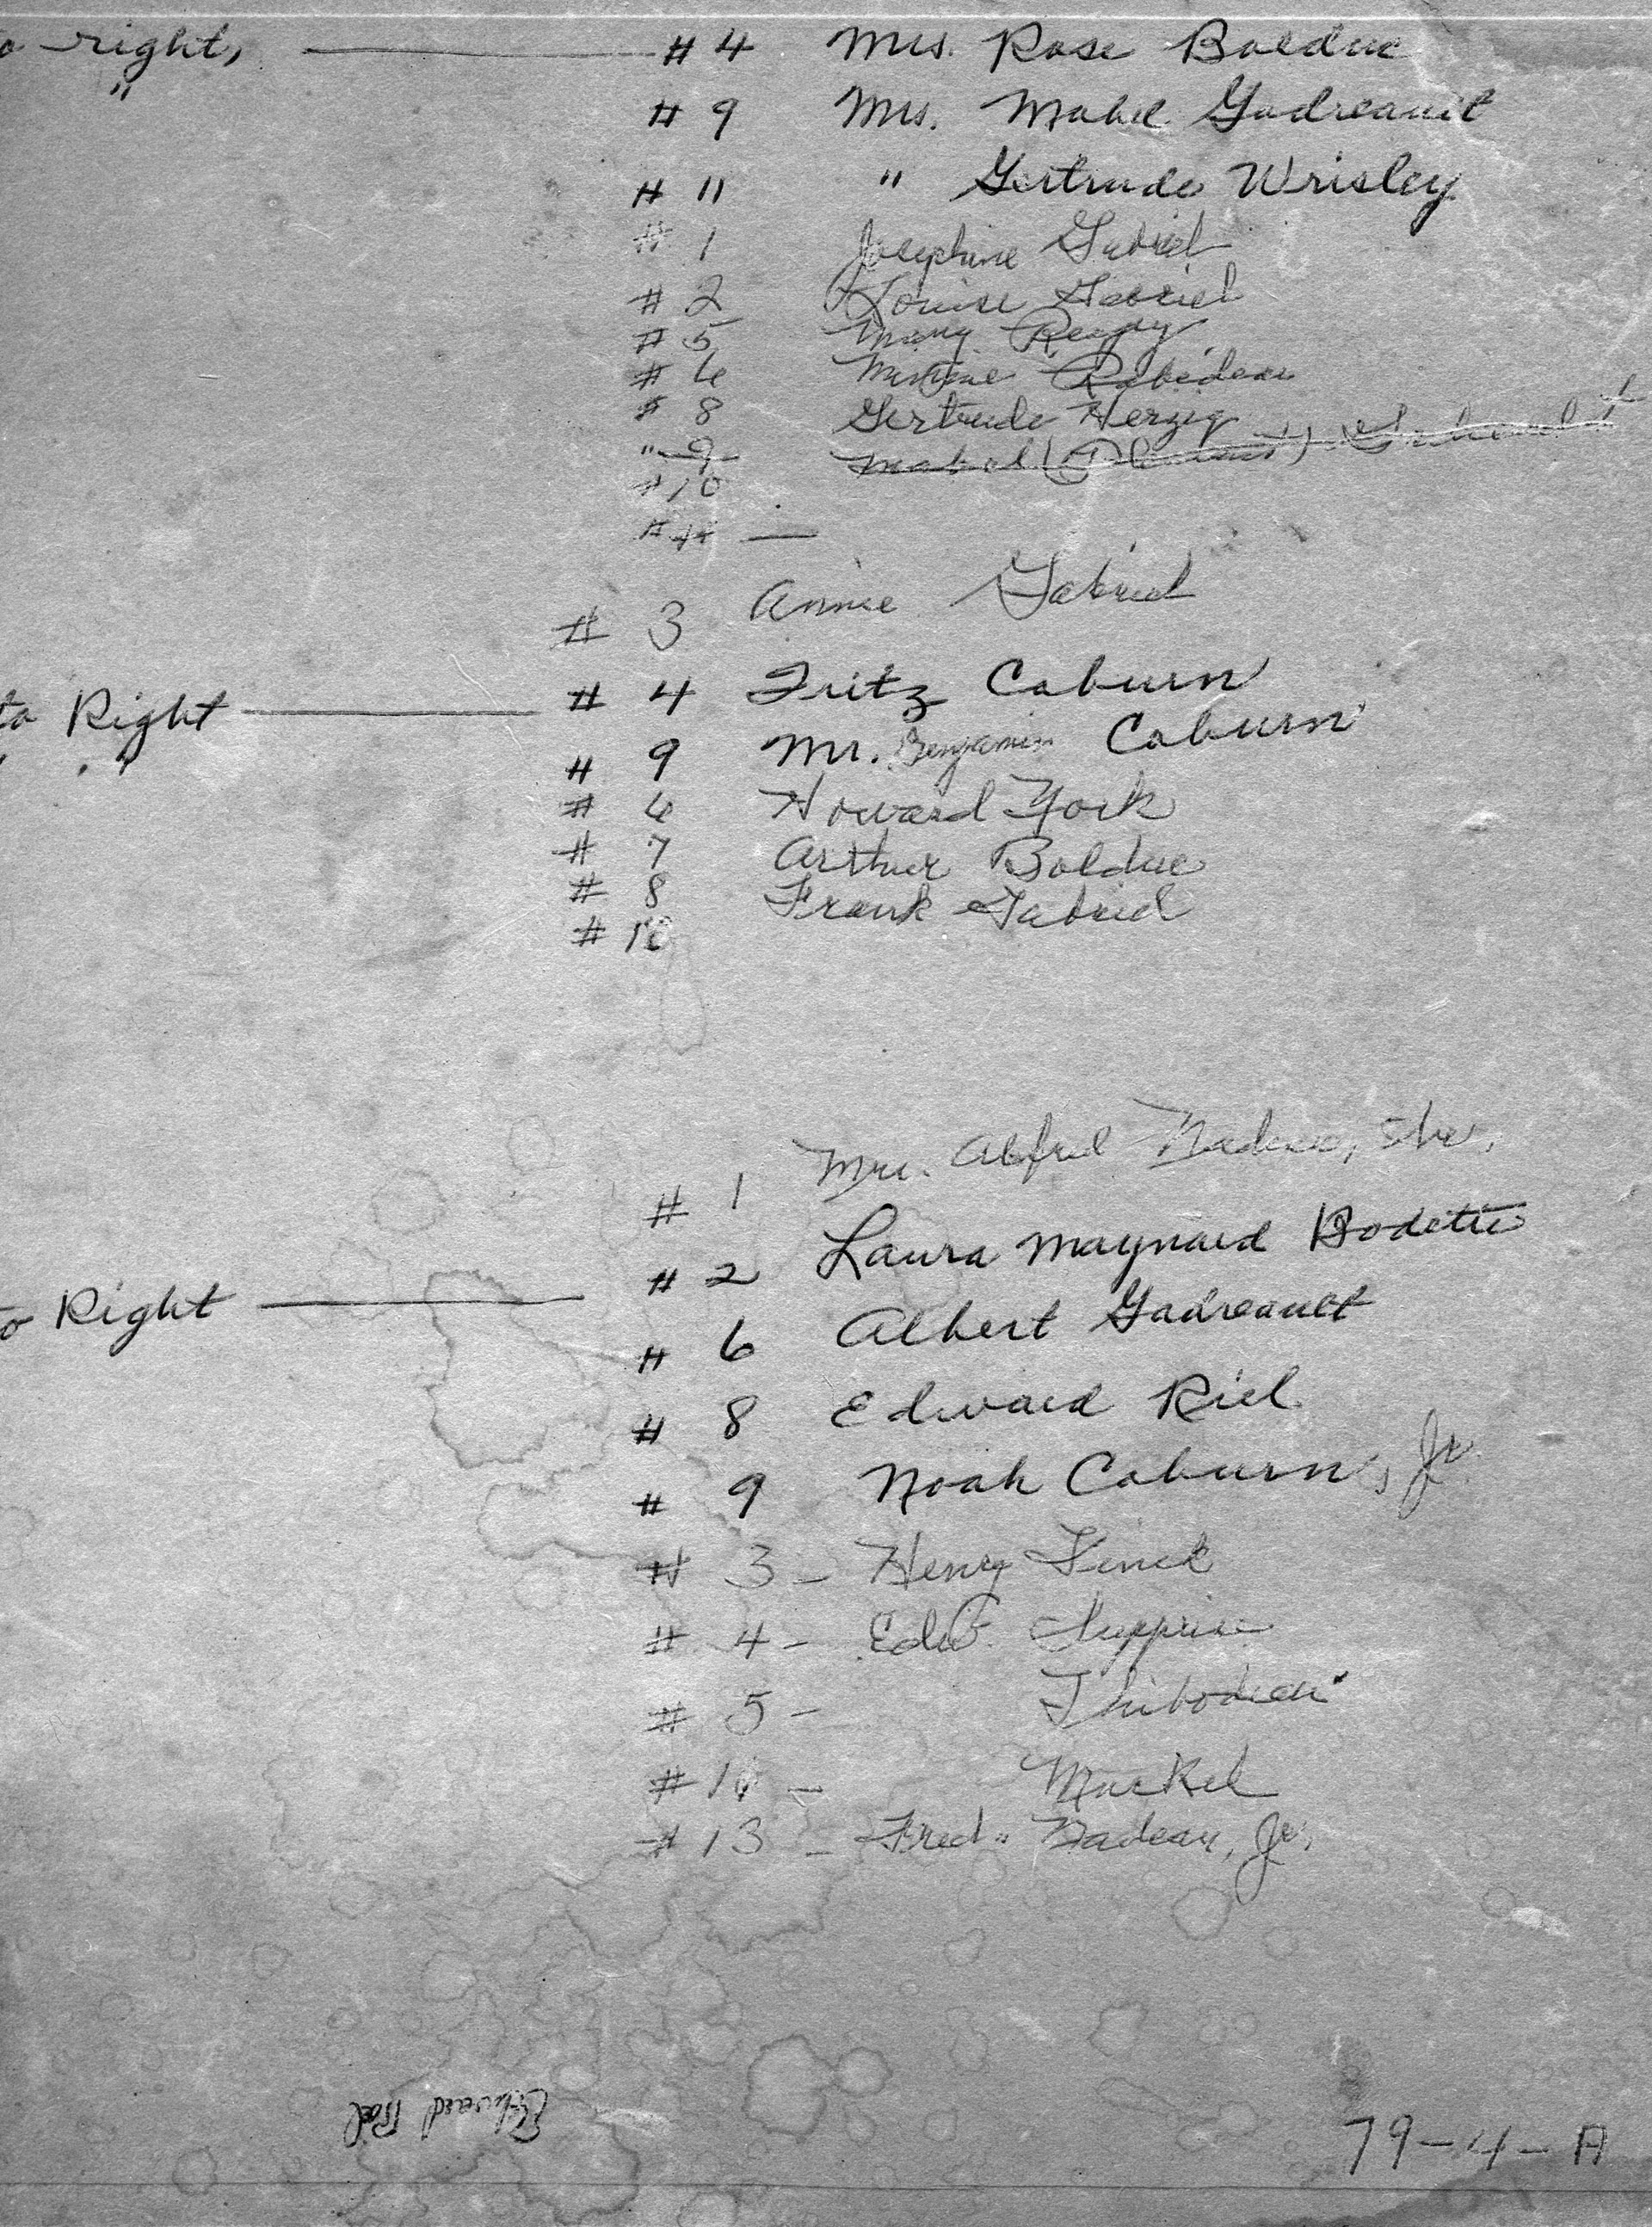 o right, # 4 Mrs. Rose Bolduc
" # 9 Mrs. Mabel Gadreault
# 11 " Gertrude Wrisley
# 1 Josephine Gabriel
# 2 Louise Gabriel
# 5 Mary
# 6
# 8 Gertrude Herzig
" 9 Mabel
# 10
#
# 3 Annie Gabriel
to Right # 4 Fritz Coburn
# 9 Mr. Benjamin Coburn
# 6 Howard York
# 7 Arthur Bolduc
# 8 Frank Gabriel
# 10
# 1 Mrs. Alfred
# 2 Laura Maynard Bodette
o Right # 6 Albert Gadreault
# 8 Edward Riel
# 9 Noah Coburn, Jr.
# 3 - Henry
# 4 - Edw.
# 5 - Thibodeau
# - Markel
# 13 - Fred. Nadeau, Jr.
Edward Riel
79-4-A